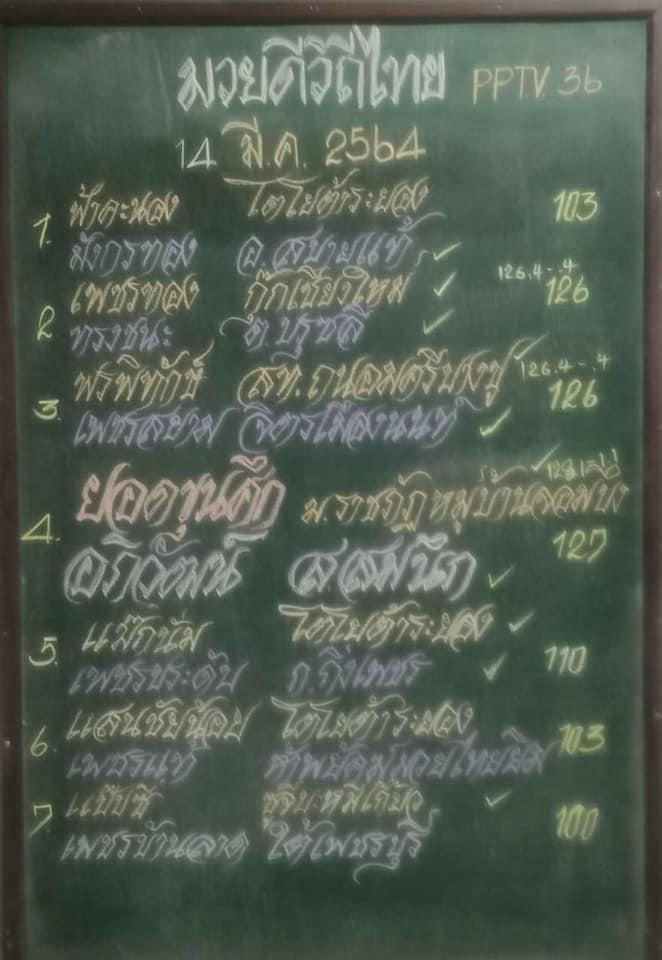 มวยดีวิถีไทย PPTV 36
14 มี.ค. 2564
1. ฟ้าคะนอง โตโยต้าระยอง 103
มังกรทอง อ.สบายแท้ ✓
2 เพชรทอง กุ๊กเชียงใหม่ ✓ 126.4-.4 126
ทรงชนะ ต.บรูซลี ✓
3. พรพิทักษ์ สท.ถนอมศรีบางปู ✓ 126.4-.4 126
เพชรสยาม จิตรเมืองนนท์ ✓
4. ยอดขุนศึก ม.ราชภัฏหมู่บ้านจอมบึง ✓ 128 127
อภิวัฒน์ ส.สมนึก ✓
5. แม็กนั่ม โตโยต้าระยอง ✓ 110
เพชรประดับ ก.กิ่งเพชร ✓
6. แสนชัยน้อย โตโยต้าระยอง 103
เพชรแท้
7 แป๊ปซี่ ✓ 100
เพชรบ้านลาด ใต้เพชรบุรี